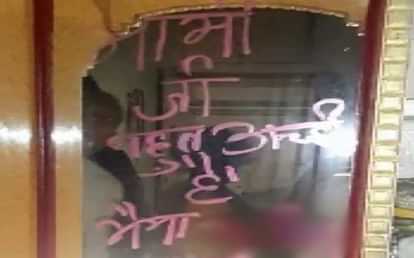 मामी
जी
बहुत अच्छी
है
भैया